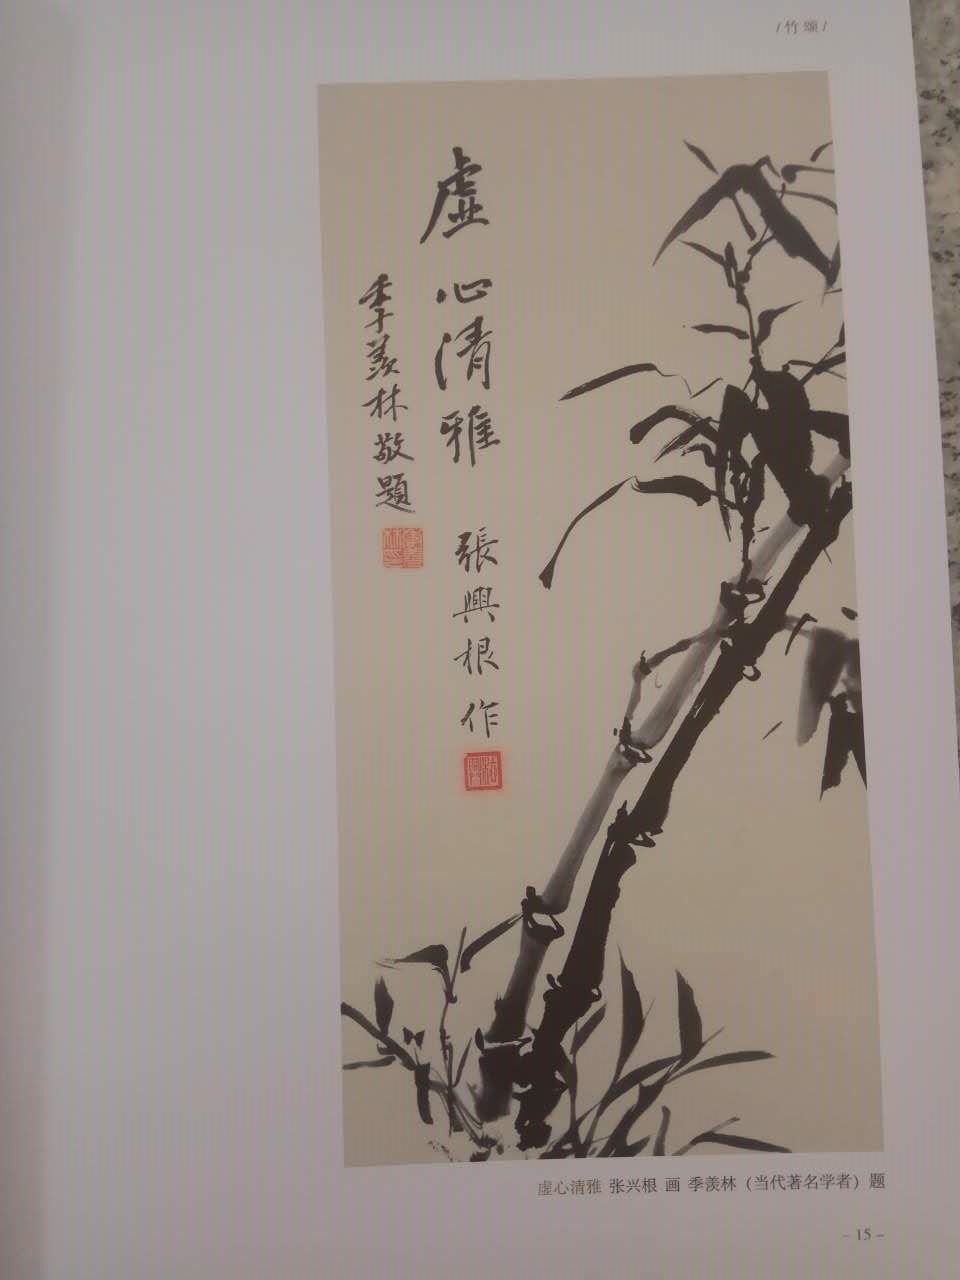 / 竹 颂 /
虚心清雅
張興根作
季羨林敬題
虚心清雅 张兴根 画 季羡林（当代著名学者）题
– 15 –